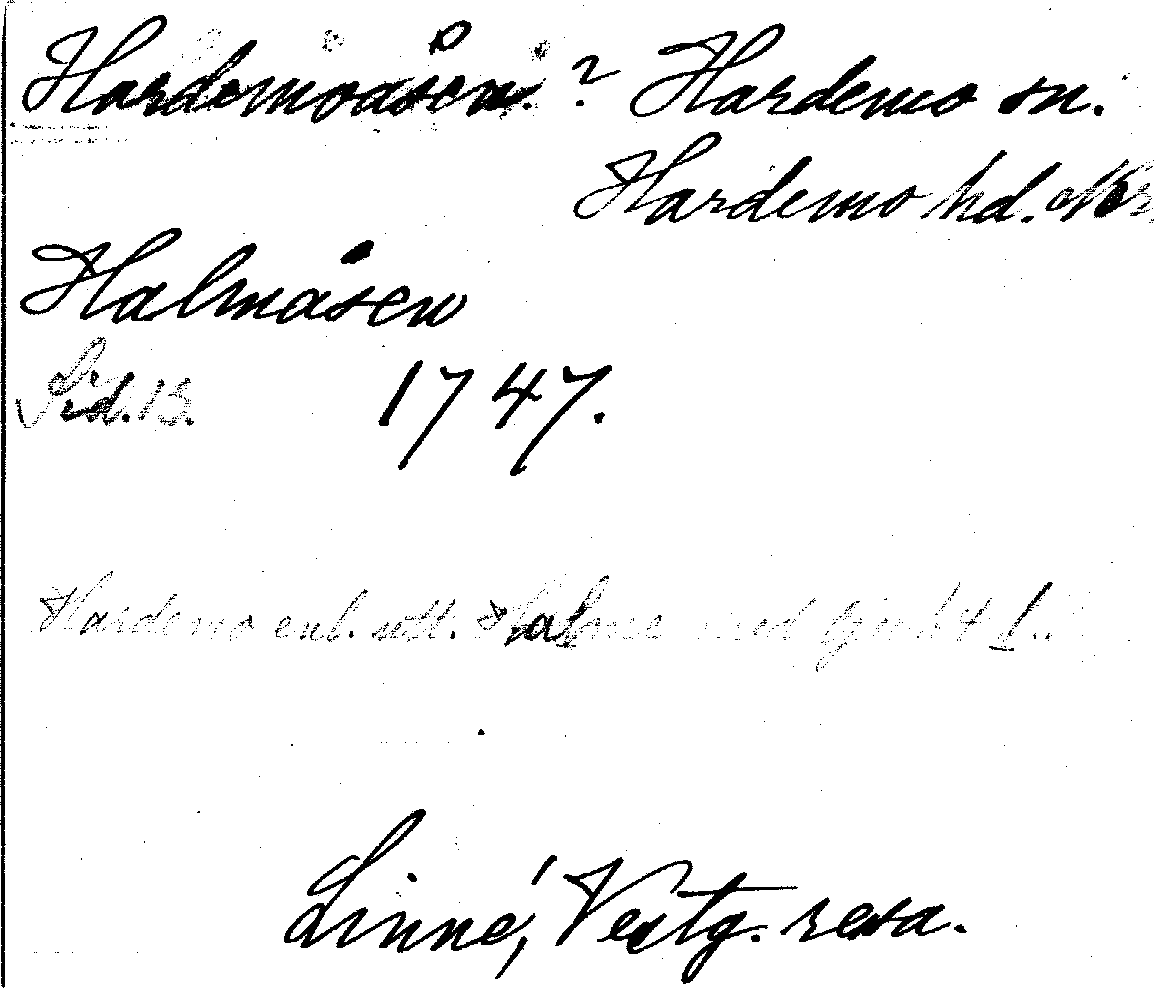 Hardemoåsen.? Hardemo sn.
Hardemo hd. Nér.
Halmåsen
1747.
Hardemo enl. utt. Halme med tjockt l..
Linné, Vestg. resa.